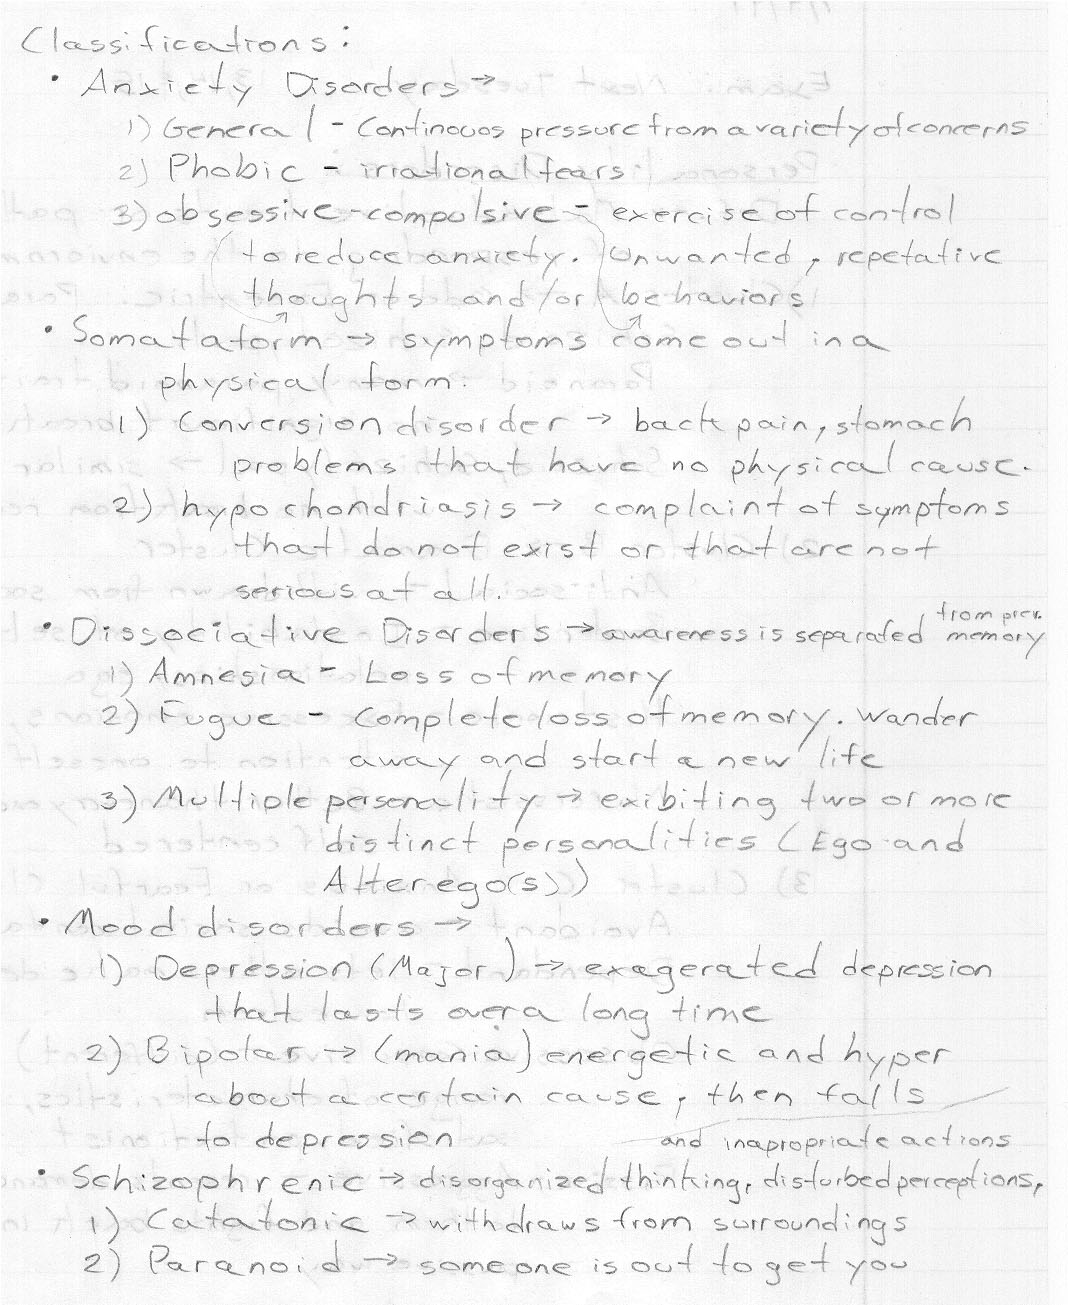 Classifications:
• Anxiety Disorders →
1) General - Continouos pressure from a variety of concerns
2) Phobic - irrational fears
3) obsessive-compulsive - exercise of control
to reduce anxiety. Unwanted, repetative
thoughts and/or behaviors
• Somataform → symptoms come out in a
physical form.
1) Conversion disorder → back pain, stomach
problems that have no physical cause.
2) hypochondriasis → complaint of symptoms
that do not exist or that are not
serious at all.
• Dissociative Disorders → awareness is separated from prev. memory
1) Amnesia - Loss of memory
2) Fugue - Complete loss of memory. Wander
away and start a new life
3) Multiple personality → exibiting two or more
distinct personalities (Ego and
Alterego(s))
• Mood disorders →
1) Depression (Major) → exagerated depression
that lasts over a long time
2) Bipolar → (mania) energetic and hyper
about a certain cause, then falls
to depression
and inapropriate actions
• Schizophrenic → disorganized thinking, disturbed perceptions,
1) Catatonic → withdraws from surroundings
2) Paranoid → someone is out to get you